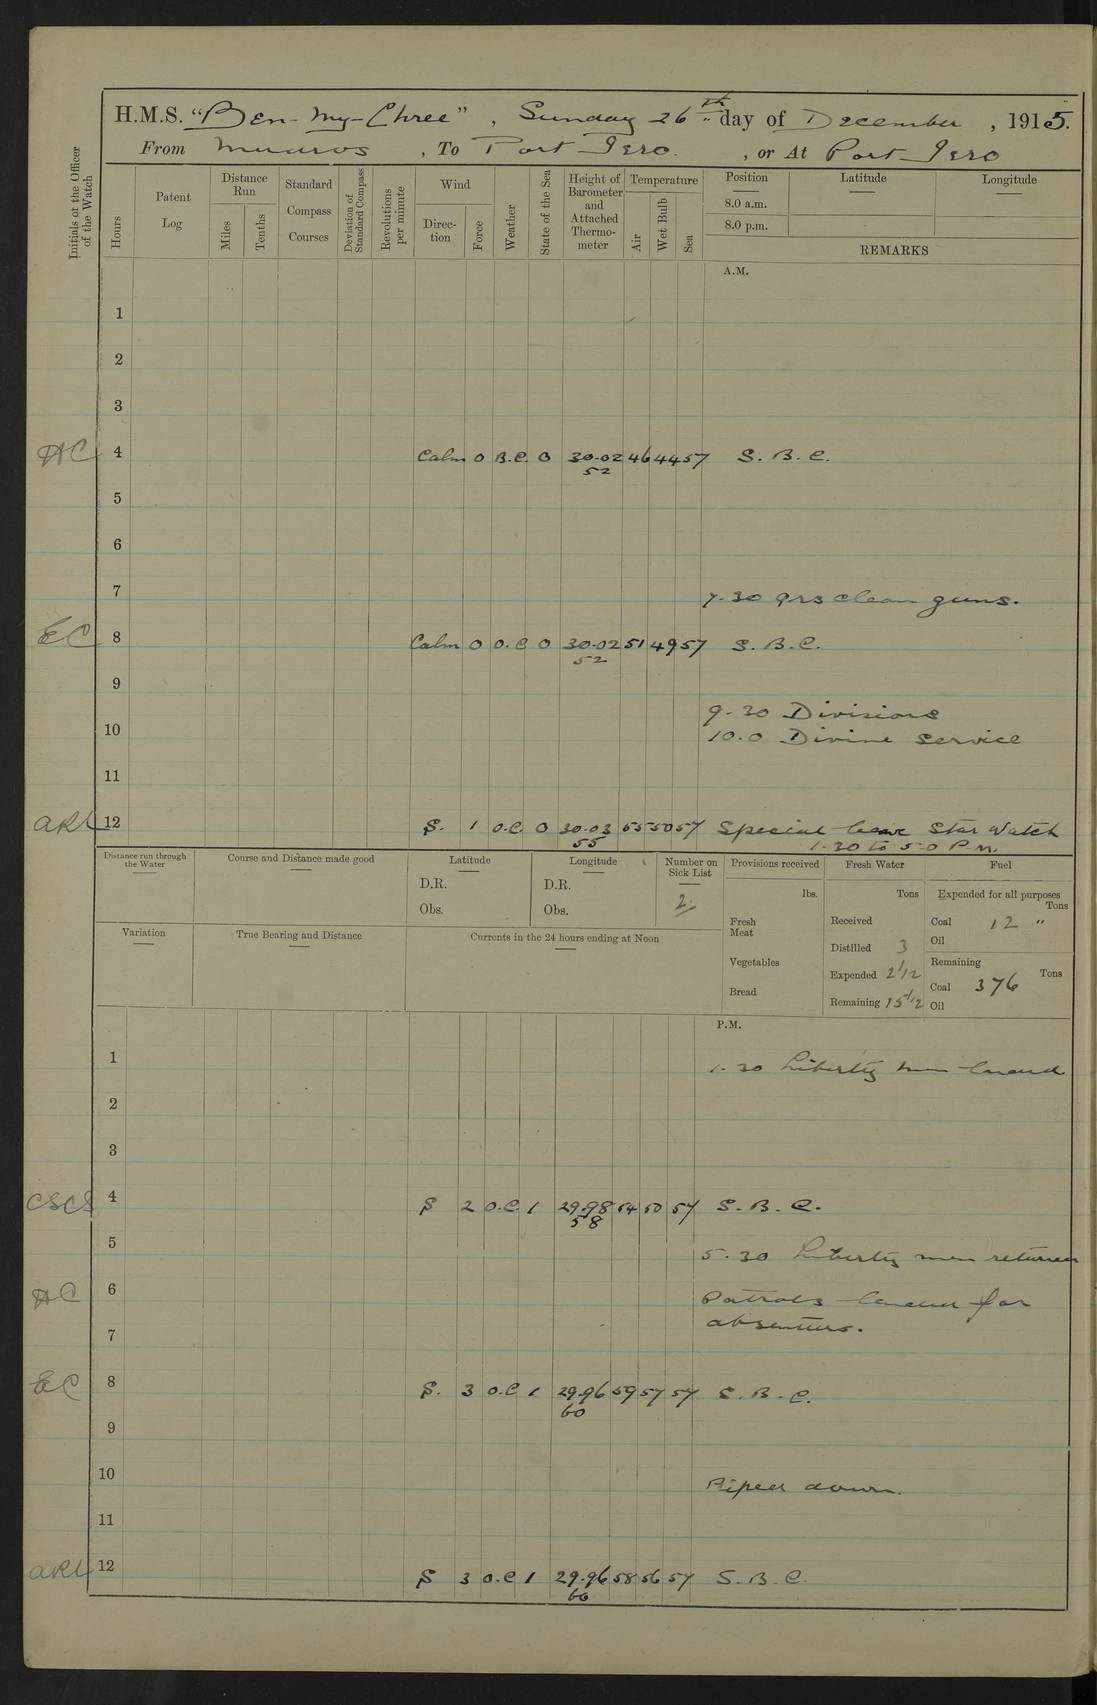 H.M.S. "Ben-my-Chree", Sunday 26th day of December, 1915.
From Mudros, To Port Iero, or At Port Iero
Initials of the Officer of the Watch
Hours
Patent Log
Distance Run
Miles
Tenths
Standard Compass Courses
Deviation of Standard Compass
Revolutions per minute
Wind
Direction
Force
Weather
State of the Sea
Height of Barometer and Attached Thermometer
Temperature
Air
Wet Bulb
Sea
Position
8.0 a.m.
8.0 p.m.
Latitude
Longitude
REMARKS
A.M.
1
2
3
HC 4 Calm 0 B.C. 0 30.02 46 44 57 S. B. C.
52
5
6
7
7-30 Qrs clean guns.
EC 8 Calm 0 O.C 0 30.02 51 49 57 S. B. C.
52
9
9-30 Divisions
10
10.0 Divine Service
11
ARL 12 S. 1 O.C. 0 30.03 55 50 57 Special leave Star Watch
55 1-30 to 5-0 P.M.
Distance run through the Water
Course and Distance made good
Latitude
D.R.
Obs.
Longitude
D.R.
Obs.
Number on Sick List
2
Provisions received
lbs.
Fresh Meat
Vegetables
Bread
Fresh Water
Tons
Received
Distilled 3
Expended 2 1/12
Remaining 15 1/2
Fuel
Expended for all purposes
Tons
Coal 12 "
Oil
Remaining
Tons
Coal 376
Oil
Variation
True Bearing and Distance
Currents in the 24 hours ending at Noon
P.M.
1
1-30 Liberty men landed
2
3
CSCS 4 S 2 O.C. 1 29.98 54 50 57 S. B. C.
58
5
5-30 Liberty men returned
HC 6 Patrols landed for
absentees.
7
EC 8 S. 3 O.C 1 29.96 59 57 57 S. B. C.
60
9
10
Piped down.
11
ARL 12 S 3 O.C 1 29.96 58 56 57 S. B. C.
60